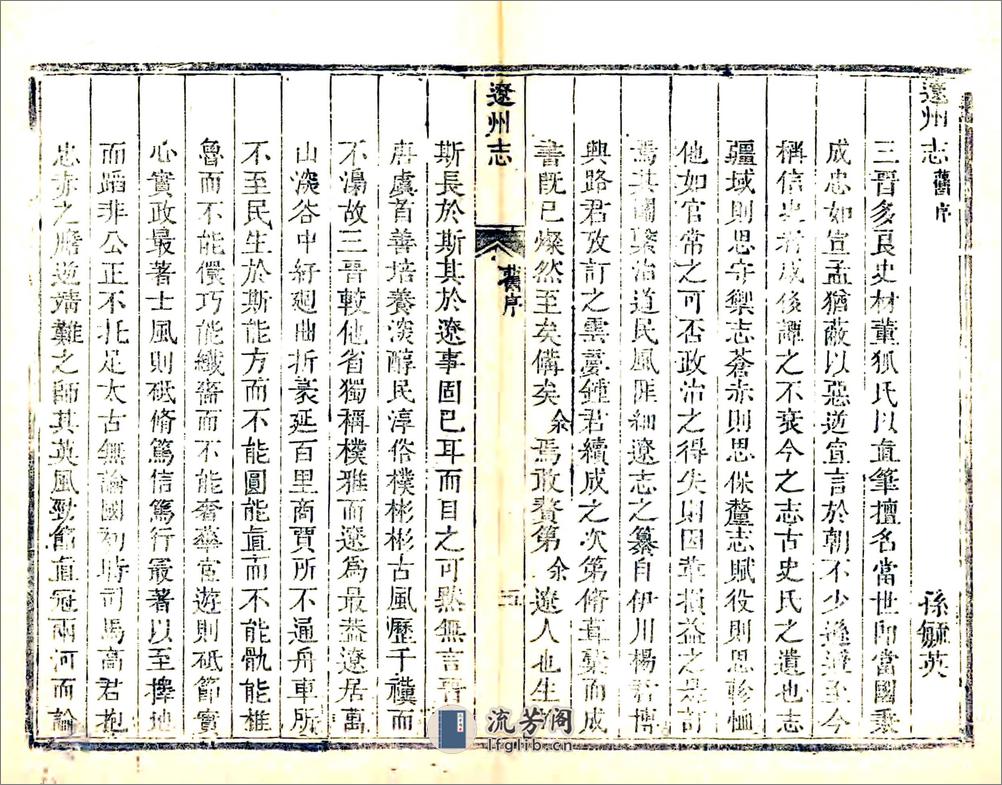 遼州志 舊序 孫毓英
三晉多良史材董狐氏以直筆擅名當世卽當國秉
成忠如宣孟猶蔽以惡逆宣言於朝不少遜避至今
稱信史者咸後譚之不衰今之志古史氏之遺也志
疆域則思守禦志蒼赤則思保釐志賦役則思軫恤
他如官常之可否政治之得失則因革損益之是訂
焉其關繫治道民風匪細遼志之纂自伊川楊君博
興路君攷訂之雲夢鍾君續成之次第脩葺彙而成
書旣已燦然至矣備矣余焉敢贅第余遼人也生
遼州志 舊序 五
斯長於斯其於遼事固已耳而目之可無言晉
唐虞首善培養深醇民淳俗樸彬彬古風歷千禩而
不漓故三晉較他省獨稱樸雅而遼為最蓋遼居萬
山深谷中紆廻曲折袤延百里商賈所不通舟車所
不至民生於斯能方而不能圓能直而不能骫能椎
魯而不能儇巧能纖嗇而不能奢華宦遊則砥節實
心實政最著士風則砥脩篤信篤行最著以至擇地
而蹈非公正不托足太古無論國初時司馬高君抱
忠赤之膽逆靖難之師其英風勁節直冠兩河而論
流芳阁
lfglib.cn